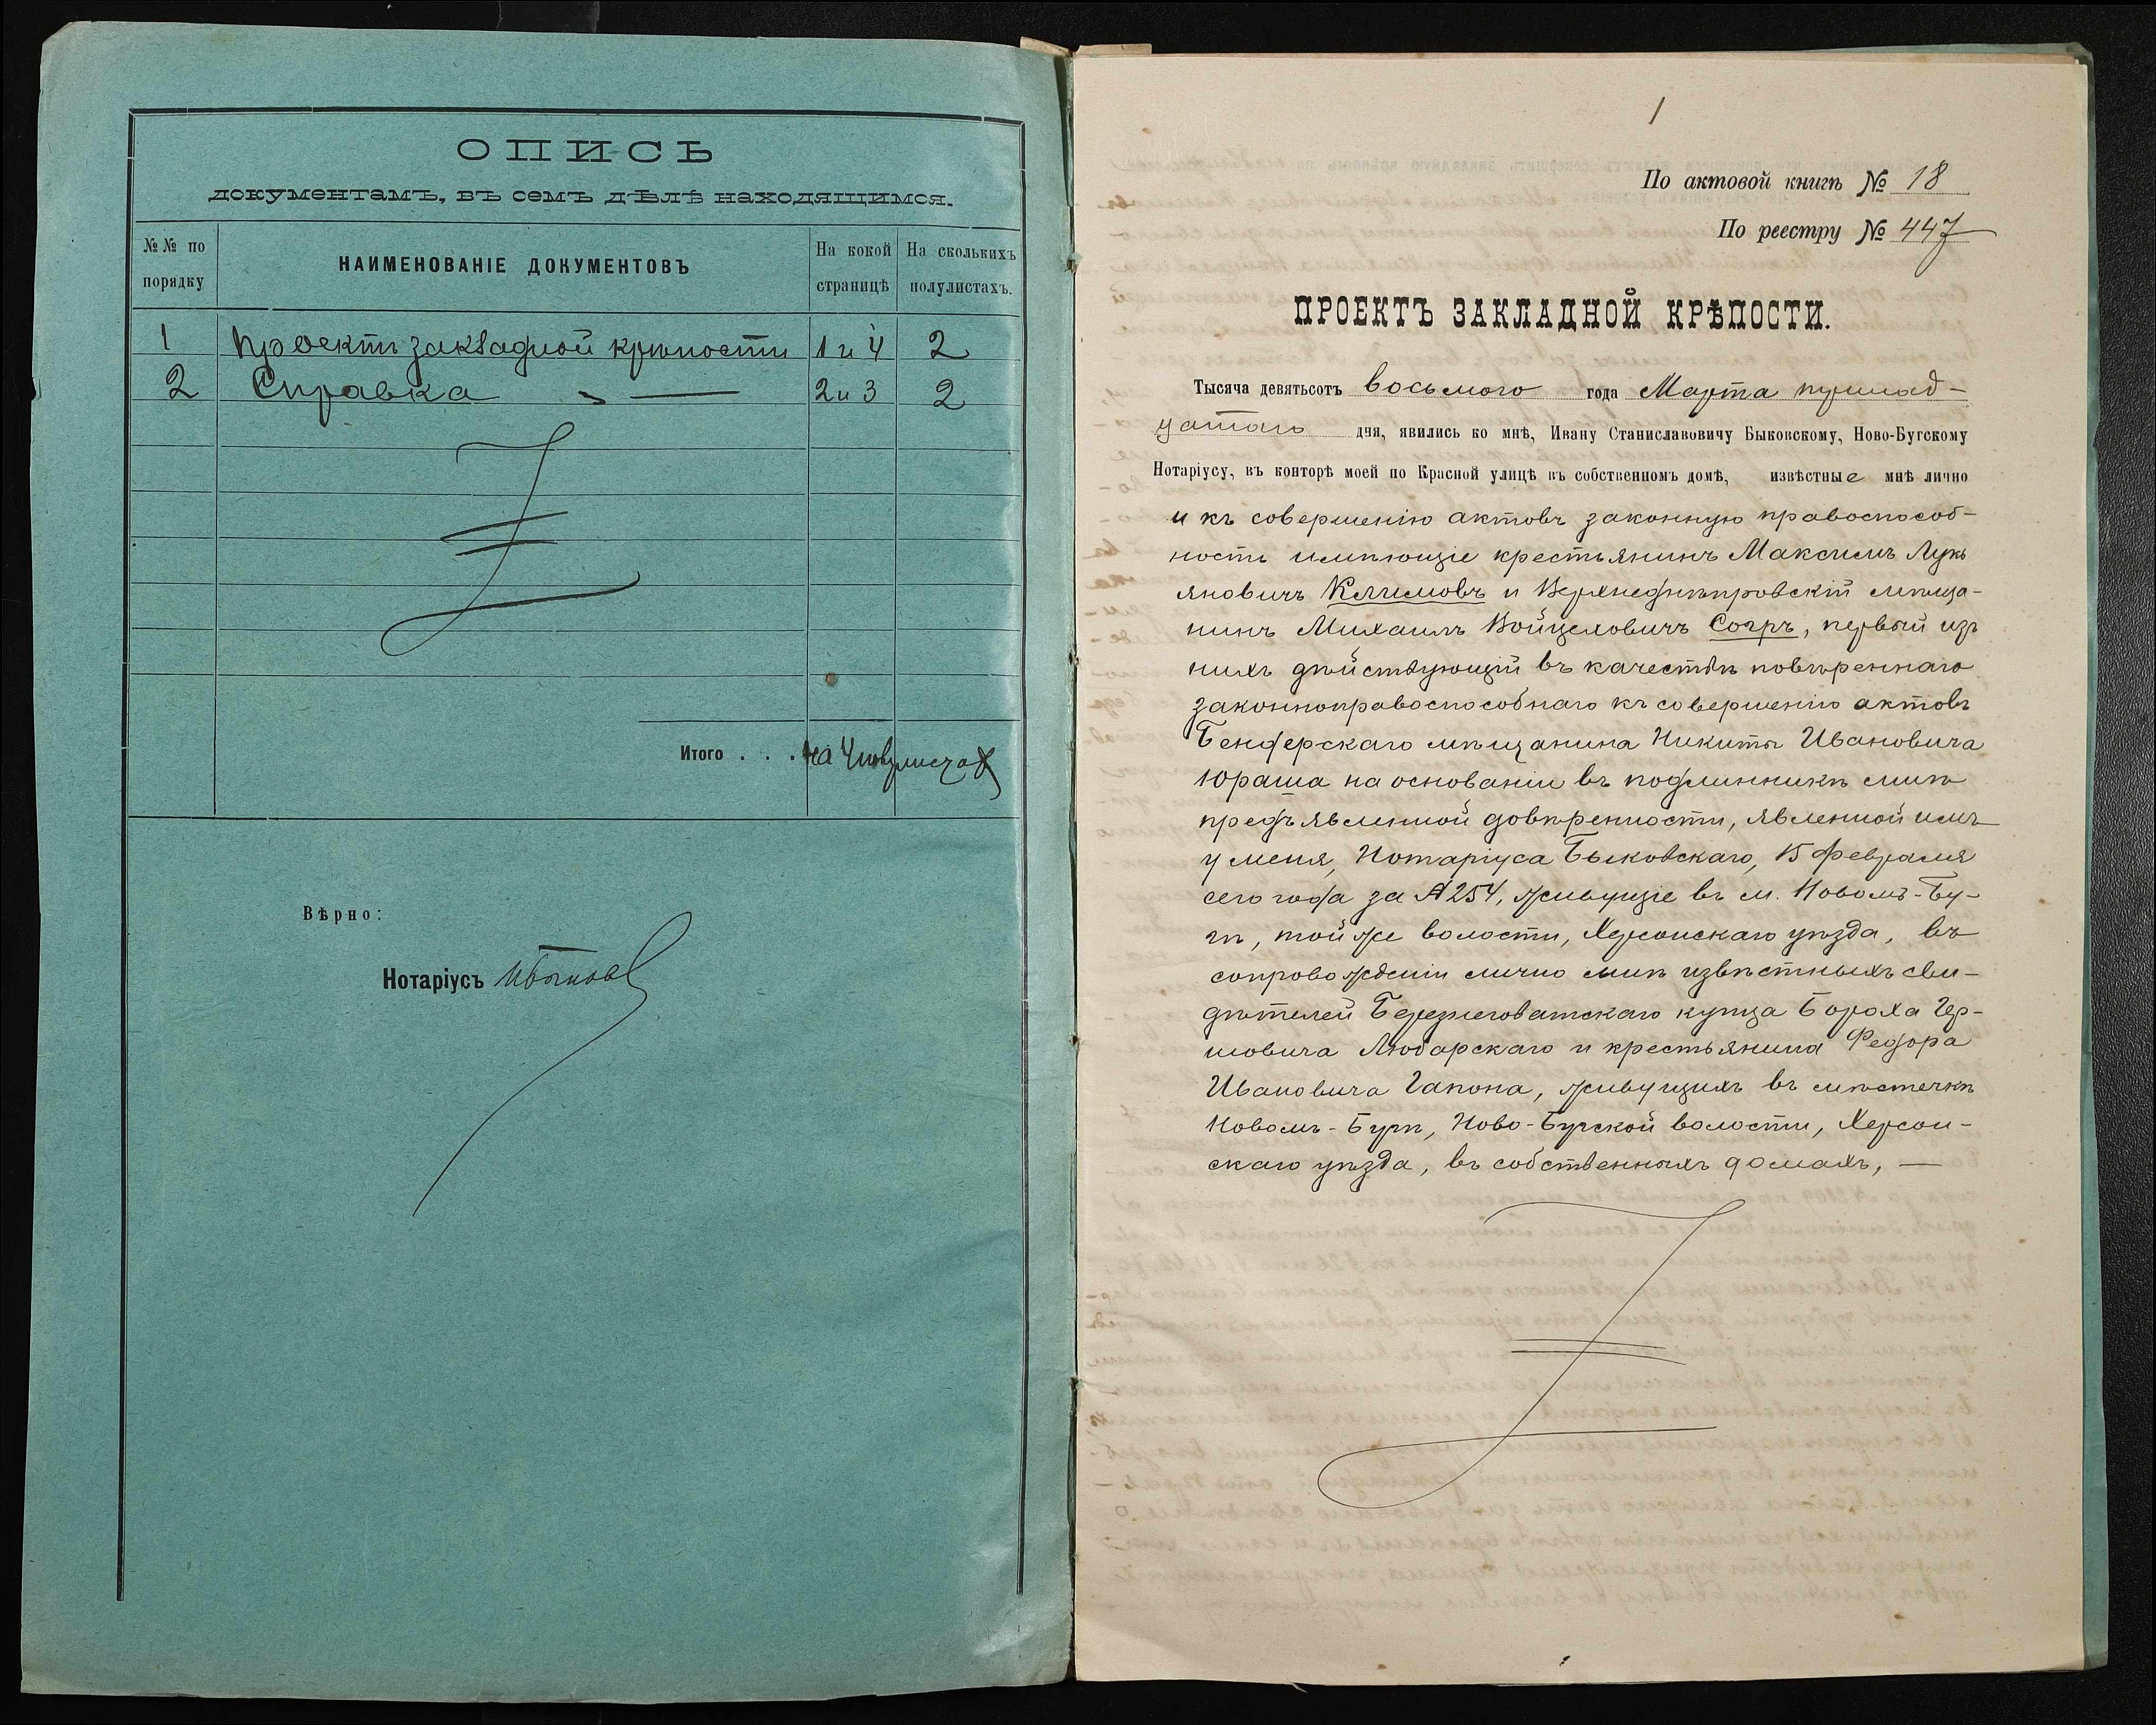 ОПИСЬ
документамъ, въ семъ дѣлѣ находящимся.
№№ по порядку
НАИМЕНОВАНІЕ ДОКУМЕНТОВЪ
На кокой страницѣ
На сколькихъ полулистахъ.
1 Проектъ закладной крѣпости 1 и 4 2
2 Справка 2 и 3 2
Итого . . . на 4 полулистах
Вѣрно:
Нотаріусъ
1
По актовой книгѣ № 18
По реестру № 447
ПРОЕКТЪ ЗАКЛАДНОЙ КРѢПОСТИ.
Тысяча девятьсотъ восьмого года Марта тринад-
цатаго дня, явились ко мнѣ, Ивану Станиславовичу Быковскому, Ново-Бугскому
Нотаріусу, въ конторѣ моей по Красной улицѣ въ собственномъ домѣ, извѣстные мнѣ лично
и къ совершенію актовъ законную правоспособ-
ность имѣющіе крестьянинъ Максимъ Лукь
яновичъ Климовъ и Верхнеднѣпровскій мѣща-
нинъ Михаилъ Войцеховичъ, первый изъ
нихъ дѣйствующій въ качествѣ повѣреннаго
законноправоспособнаго къ совершенію актовъ
Бендерскаго мѣщанина Никиты Ивановича
Юраша на основаніи въ подлинникѣ мнѣ
предъявленной довѣренности, явленной имъ
у меня, Нотаріуса Быковскаго, 15 февраля
сего года за № 254, живущіе въ м. Новомъ-Бу-
гѣ, той же волости, Херсонскаго уѣзда, въ
сопровожденіи лично мнѣ извѣстныхъ сви-
дѣтелей Березнеговатскаго купца Бороха Гер-
шовича Любарскаго и крестьянина Федора
Ивановича Гапона, живущихъ въ мѣстечкѣ
Новомъ-Бугѣ, Ново-Бугской волости, Херсон-
скаго уѣзда, въ собственныхъ домахъ, —